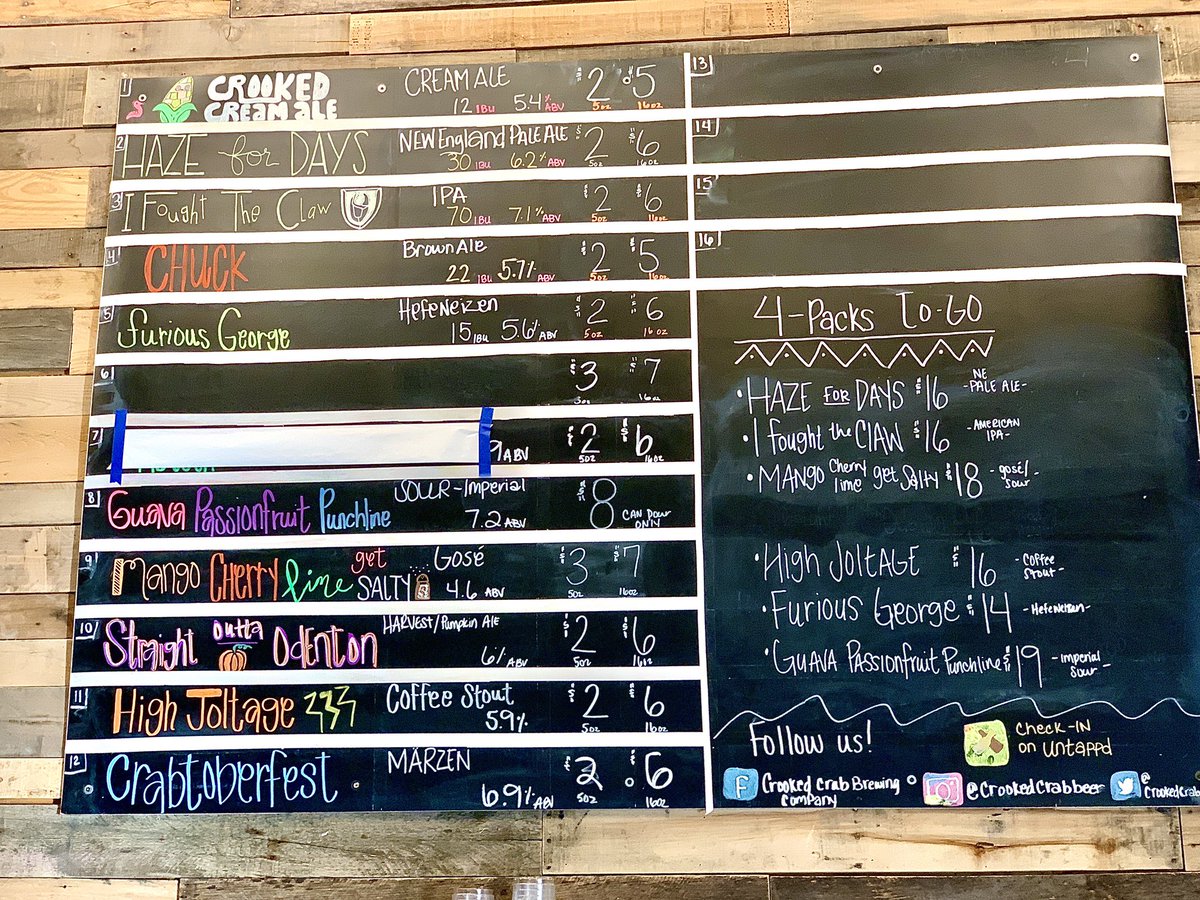 1 CROOKED CREAM ALE CREAM ALE 12 IBU 5.4% ABV $2 5oz $5 16oz
2 HAZE for DAYS NEW England PALE ALE 30 IBU 6.2% ABV $2 5oz $6 16oz
3 I Fought The Claw IPA 70 IBU 7.1% ABV $2 5oz $6 16oz
4 CHUCK Brown Ale 22 IBU 5.7% ABV $2 5oz $5 16oz
5 Furious George Hefeweizen 15 IBU 5.6% ABV $2 5oz $6 16oz
6 $3 5oz $7 16oz
7 9 ABV $2 5oz $6 16oz
8 Guava Passionfruit Punchline SOUR-Imperial 7.2 ABV $8 CAN POUR ONLY
9 Mango CHERRY lime get SALTY Gosé 4.6 ABV $3 5oz $7 16oz
10 Straight Outta Odenton HARVEST/Pumpkin Ale 6% ABV $2 5oz $6 16oz
11 High Joltage Coffee Stout 5.9% $2 5oz $6 16oz
12 Crabtoberfest MÄRZEN 6.9% ABV $2 5oz $6 16oz
13
14
15
16
4-Packs To-GO
• HAZE FOR DAYS $16 NE -PALE ALE-
• I fought the CLAW $16 -AMERICAN IPA-
• MANGO Cherry lime get Salty $18 -gosé/sour-
• High JOLTAGE $16 -Coffee Stout-
• Furious George $14 -Hefeweizen-
• GUAVA PASSIONFRUIT Punchline $19 -Imperial Sour-
Follow us!
Check-IN on UNTAPPD
F Crooked Crab Brewing Company
@CrookedCrabbeer
@CrookedCrab